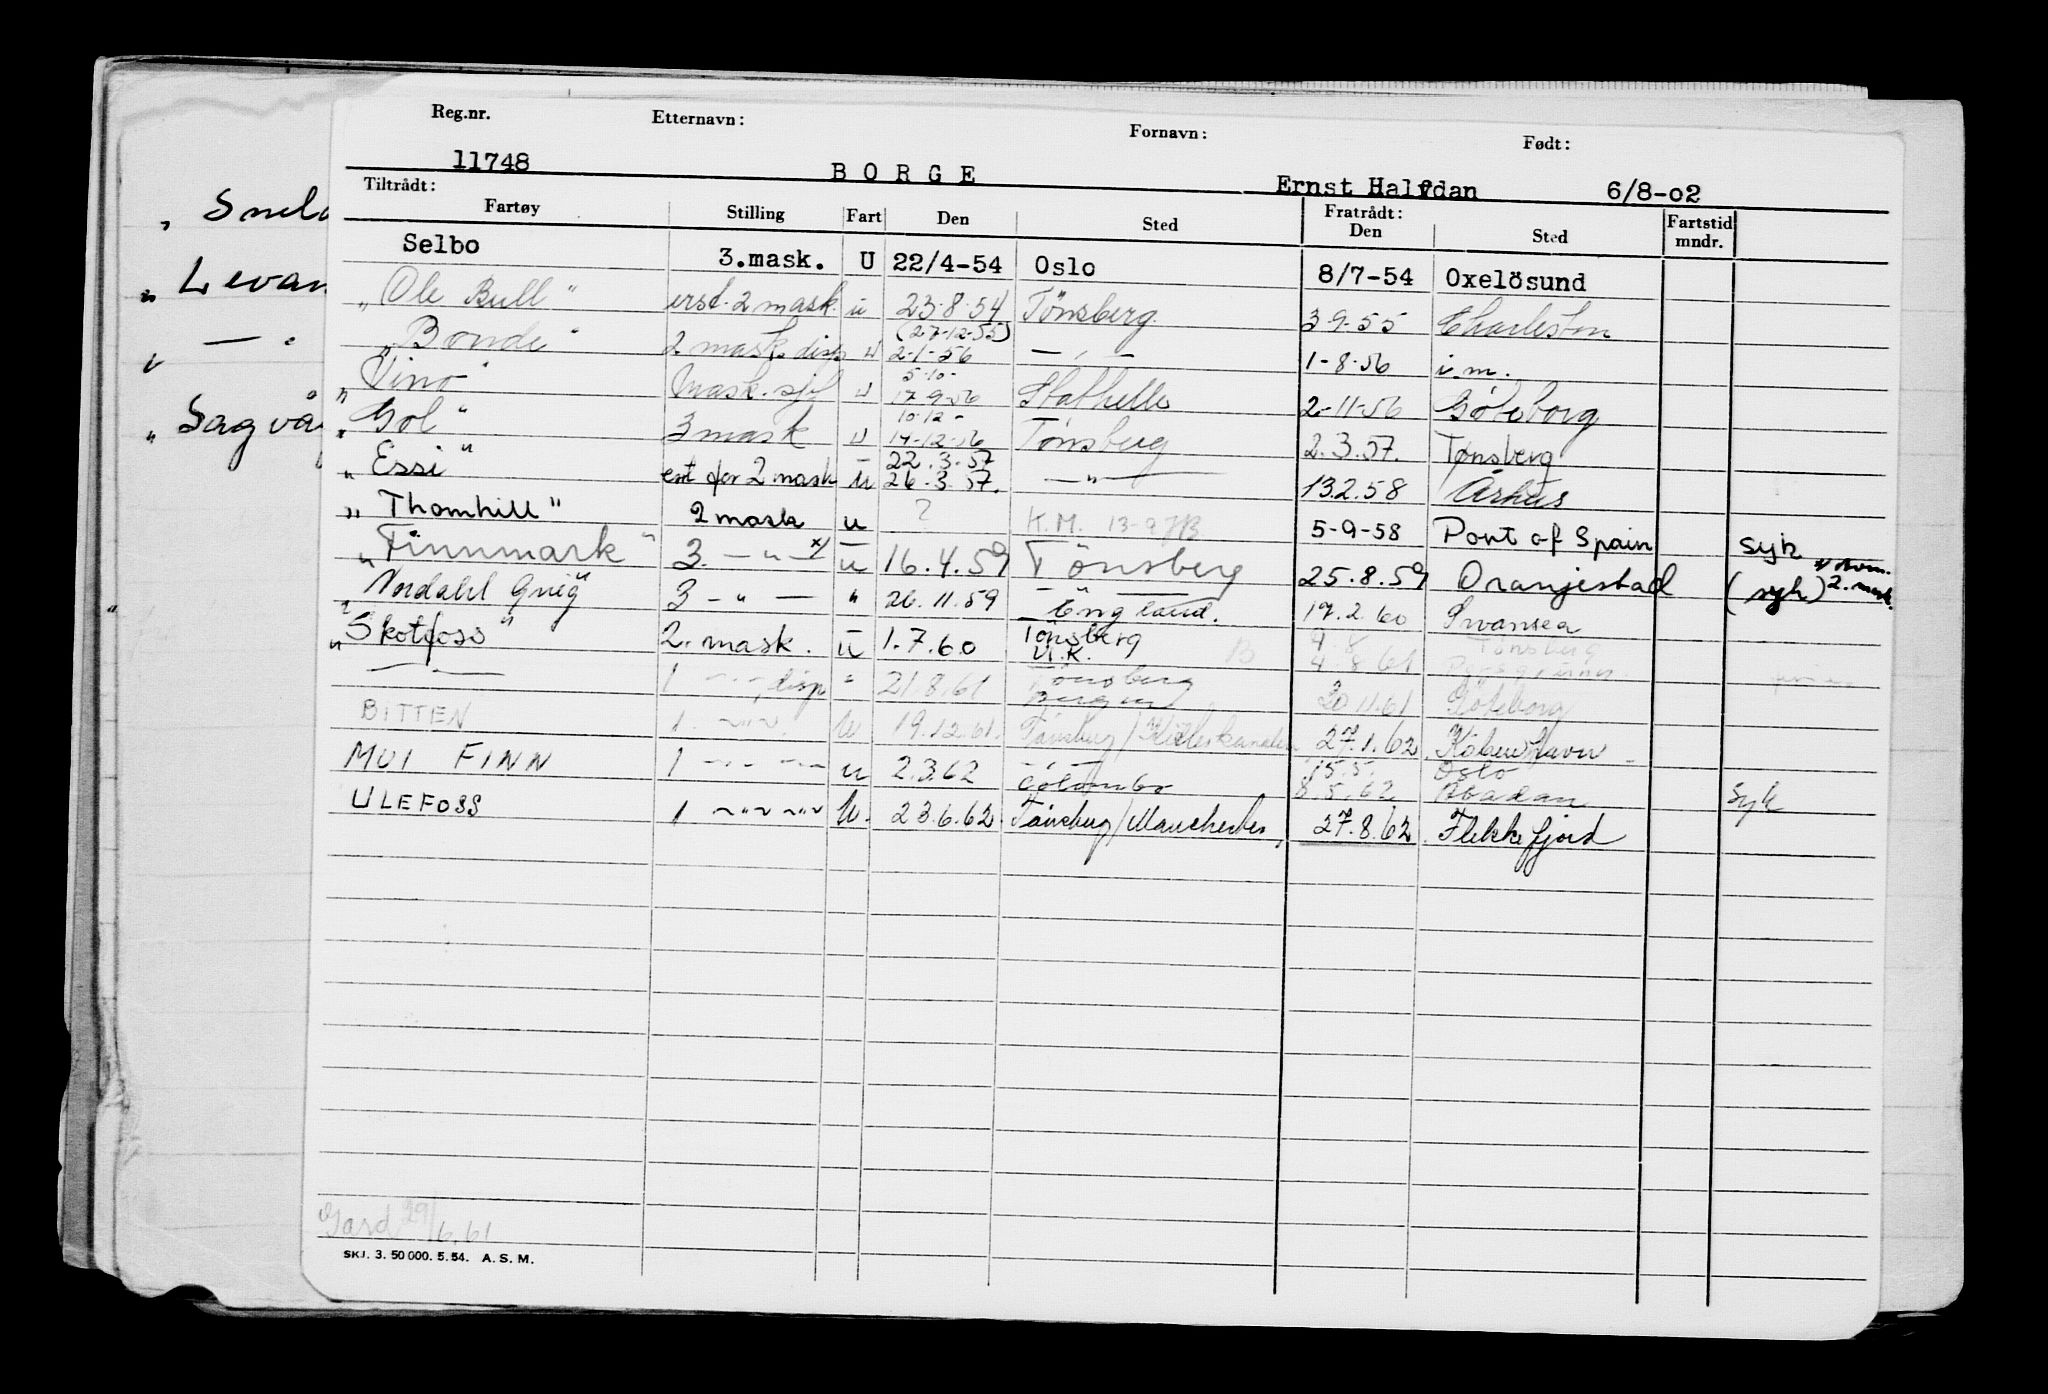 Reg.nr. Etternavn: Fornavn: Født:
11748 BORGE Ernst Halfdan 6/8-02
Tiltrådt: Fratrådt:
Fartøy Stilling Fart Den Sted Den Sted Fartstid mndr.
Selbo 3.mask. U 22/4-54 Oslo 8/7-54 Oxelösund
"Ole Bull" erst. 2 mask. u 23-8-54 Tönsberg 3-9-55 Charleston
(27-12-55)
"Bonde" 2 mask. disp u 2-1-56 — " — 1-8-56 i.m.
5-10-
"Vino" mask. u 17-9-56 Stathelle 2-11-56 Göteborg
10-12-
"Gol" 3 mask u 14-12-56 Tönsberg 2.3.57. Tønsberg
22.3.57
"Essi" erst for 2 mask u 26.3.57. — " — 13.2.58 Århus
"Thornhill" 2 mask u ? K.M. 13-9 5-9-58 Port of Spain syk
"Finnmark" 3. — " — x) u 16.4.59 Tönsberg 25.8.59 Oranjestad (syk) x) 2. mask.
"Nordahl Grieg" 3 — " — " 26.11.59 England. 17.2.60 Swansea
"Skotfoss" 2. mask. u 1.7.60 Tönsberg U.K. 4.8.61 Tönsberg
— " — 1 — " — disp " 21.8.61 Tönsberg Bergen 30.11.61 Göteborg
BITTEN 1. —"—"— U 19.12.61. Tönsberg/Kielerkanalen 27.1.62. København
15.5. Oslo
MUI FINN 1 —"— —"— u 2.3.62 — " — Colombo 8.5.62 Abadan Syk
ULEFOSS 1 —"— —"— U. 23.6.62. Tönsberg/Manchester, 27.8.62. Flekkefjord
29/6.61
SKJ. 3. 50 000. 5. 54. A. S. M.
" Snel
" Levan
" — " —
" Sagvå